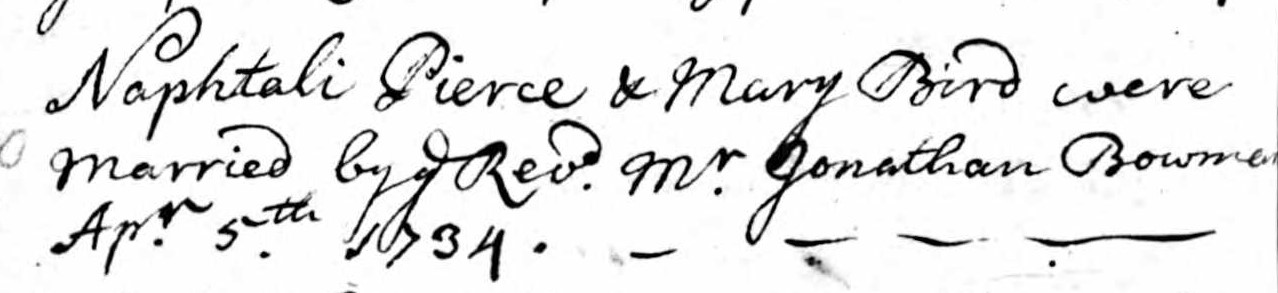 Naphtali Pierce & Mary Bird were
Married by ye Revd. Mr. Jonathan Bowman
Apr. 5th. 1734.